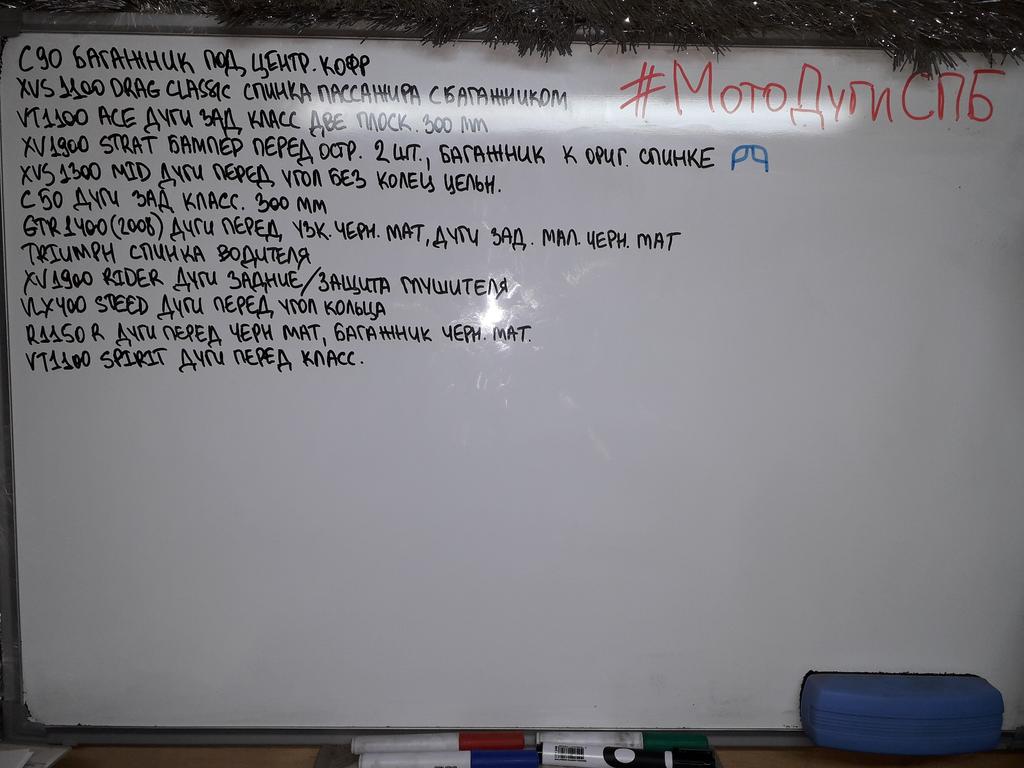 #МотоДугиСПБ
C90 БАГАЖНИК ПОД ЦЕНТР. КОФР
XVS 1100 DRAG CLASSIC СПИНКА ПАССАЖИРА С БАГАЖНИКОМ
VT1100 ACE ДУГИ ЗАД КЛАСС ДВЕ ПЛОСК. 300 ММ
XV1900 STRAT БАМПЕР ПЕРЕД ОСТР. 2 ШТ., БАГАЖНИК К ОРИГ. СПИНКЕ
XVS 1300 MID ДУГИ ПЕРЕД УГОЛ БЕЗ КОЛЕЦ ЦЕЛЬН.
C50 ДУГИ ЗАД КЛАСС. 300 ММ
GTR1400(2008) ДУГИ ПЕРЕД УЗК. ЧЕРН. МАТ, ДУГИ ЗАД. МАЛ. ЧЕРН. МАТ
TRIUMPH СПИНКА ВОДИТЕЛЯ
XV1900 RIDER ДУГИ ЗАДНИЕ/ЗАЩИТА ГЛУШИТЕЛЯ
VLX400 STEED ДУГИ ПЕРЕД УГОЛ КОЛЬЦА
R1150 R ДУГИ ПЕРЕД ЧЕРН МАТ, БАГАЖНИК ЧЕРН. МАТ.
VT1100 SPIRIT ДУГИ ПЕРЕД КЛАСС.